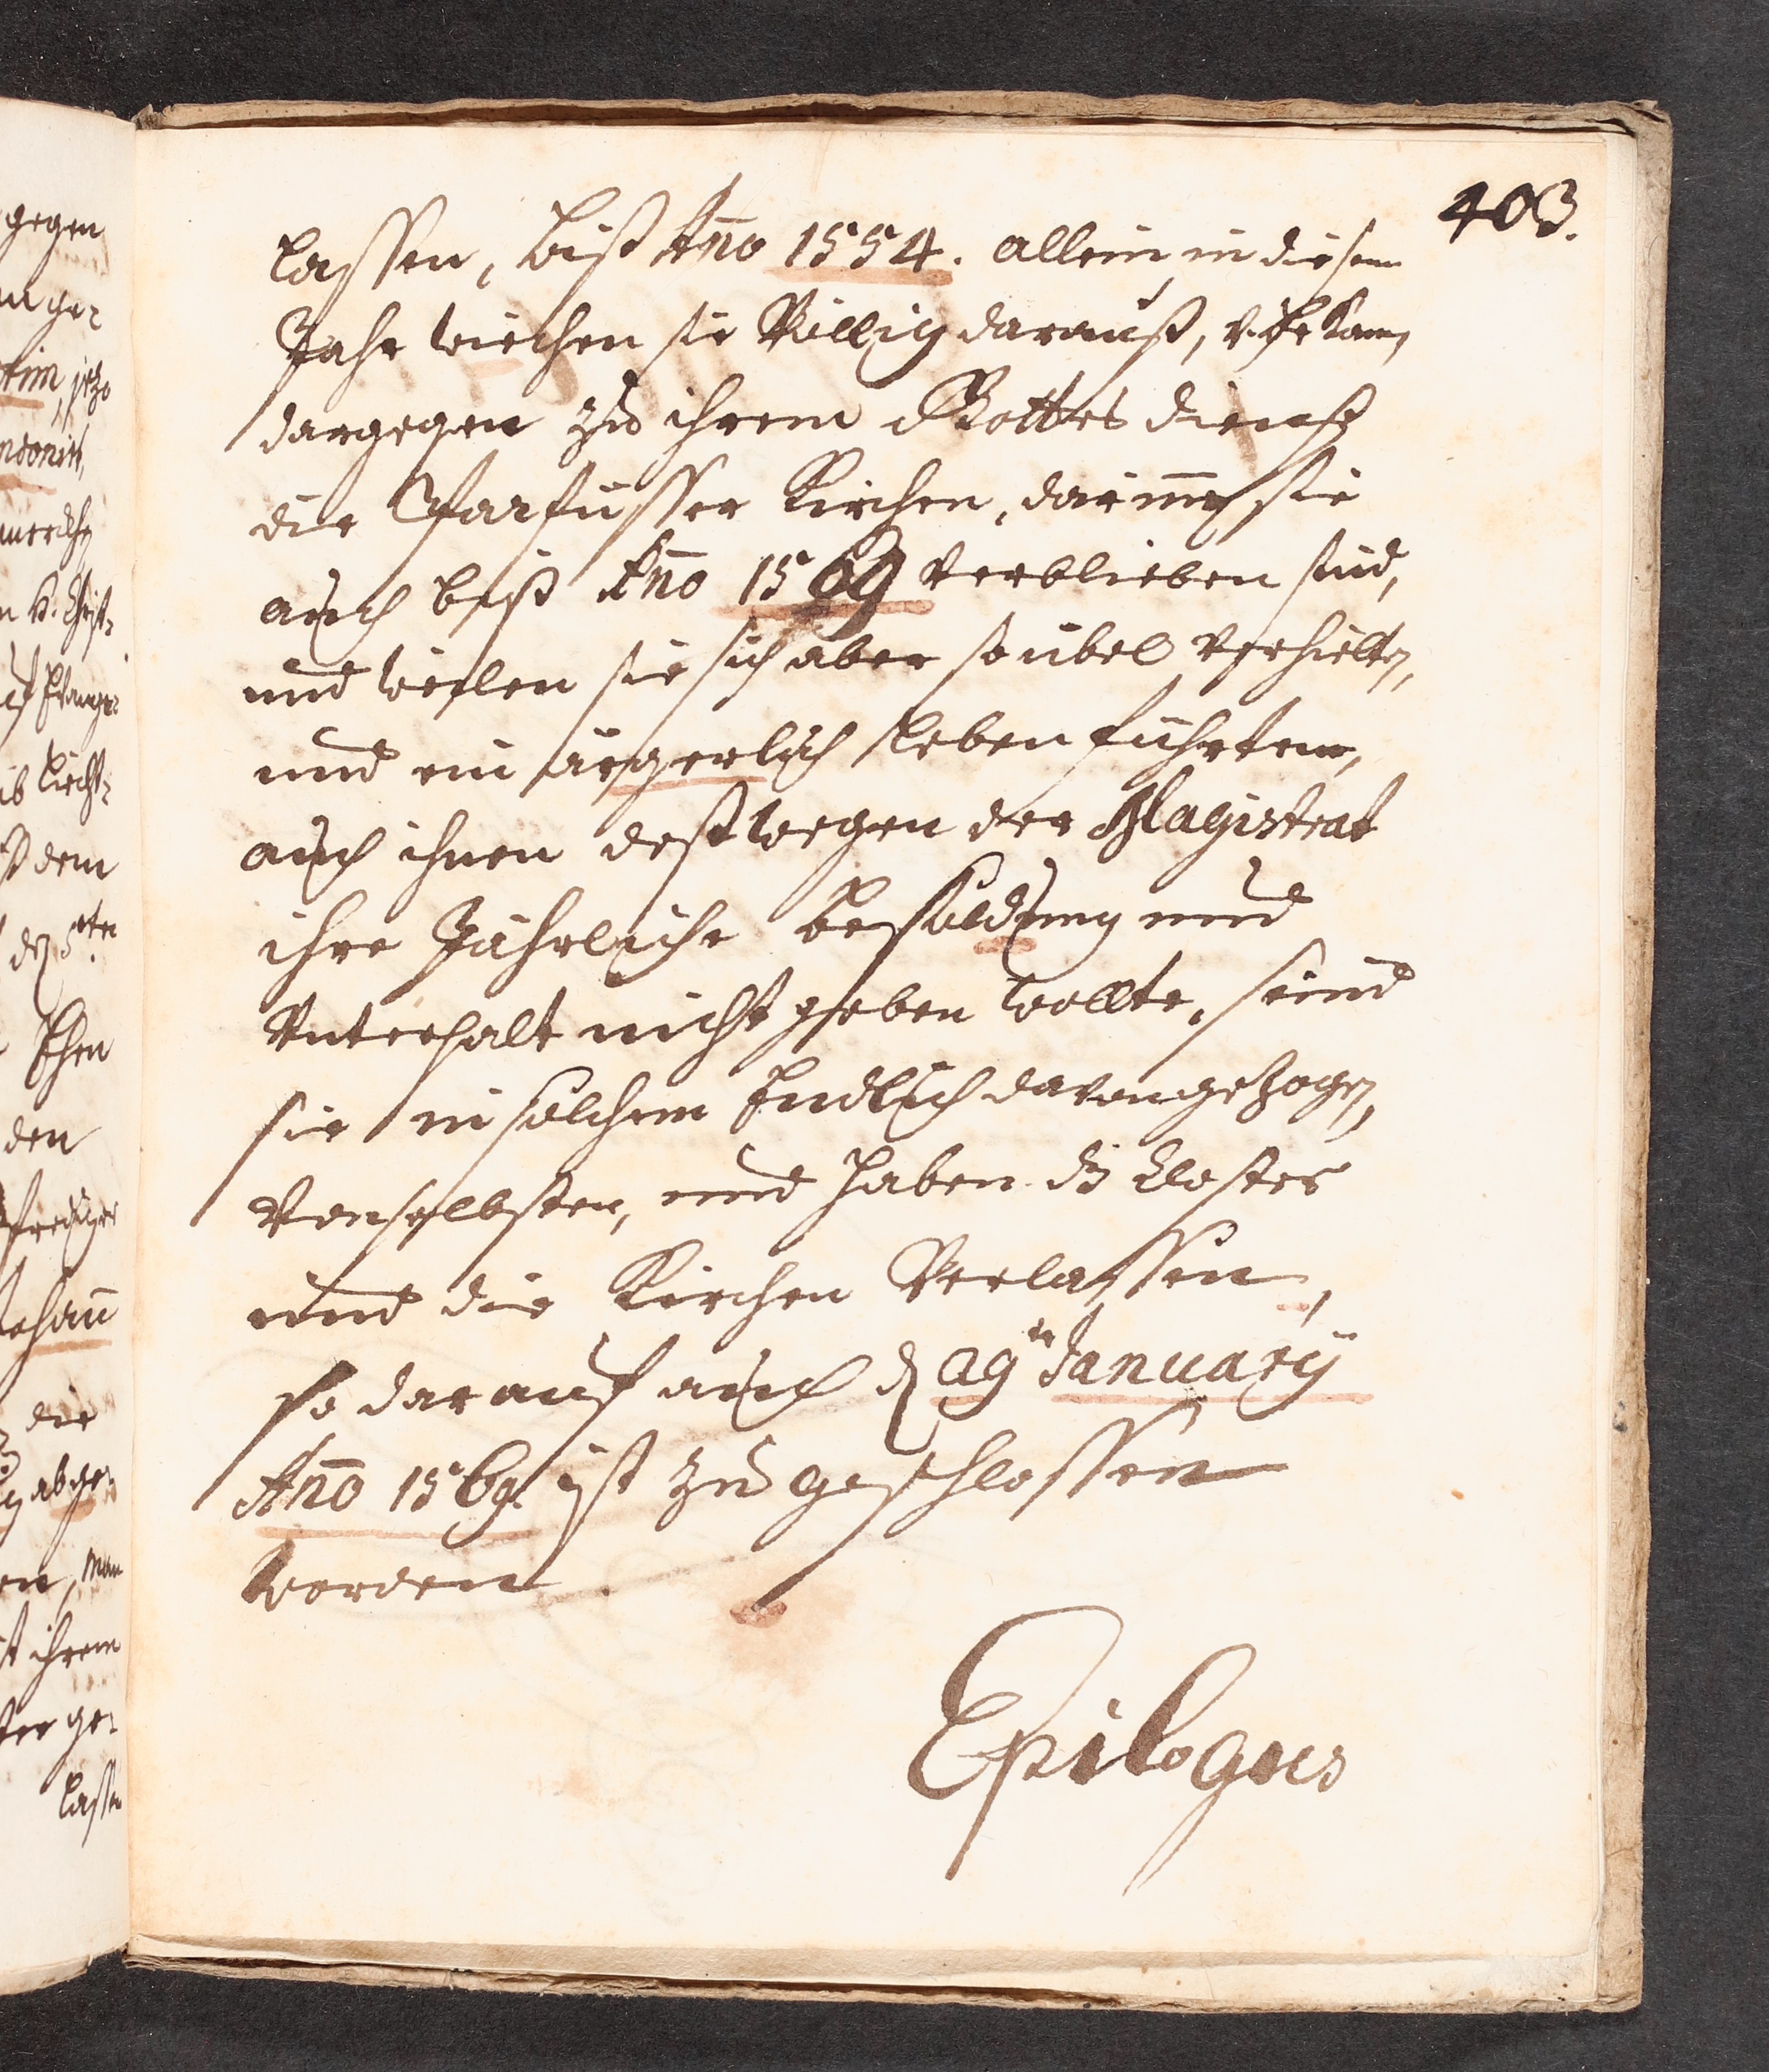 403.
lassen, biß Año 1554. allein in diesem
Jahr wichen sie Völlig darauß, v. bekam,
dargegen zu ihrem Gottes dienst
die Parfüsser Kirchen, darinne sie
auch biß Año 1569 verblieben sind,
und weilen sie sich aber so übel Verhielten,
und ein ärgerlich leben führten,
auch ihnen deßwegen der Magistrat
ihre Jährliche besoldung und
Unterhalt nicht geben wollte, seind
sie in solchem Endlich davon gezogen,
Von selbsten, und haben dz Closter
und die Kirchen Verlassen,
so darauf auch d 29ten January
Año 1569. ist zugeschlossen
worden.
Epilogus